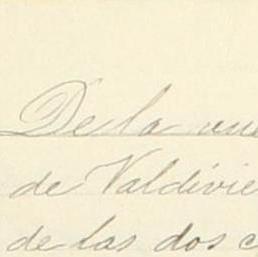 De la
de Valdivie
de las dos c